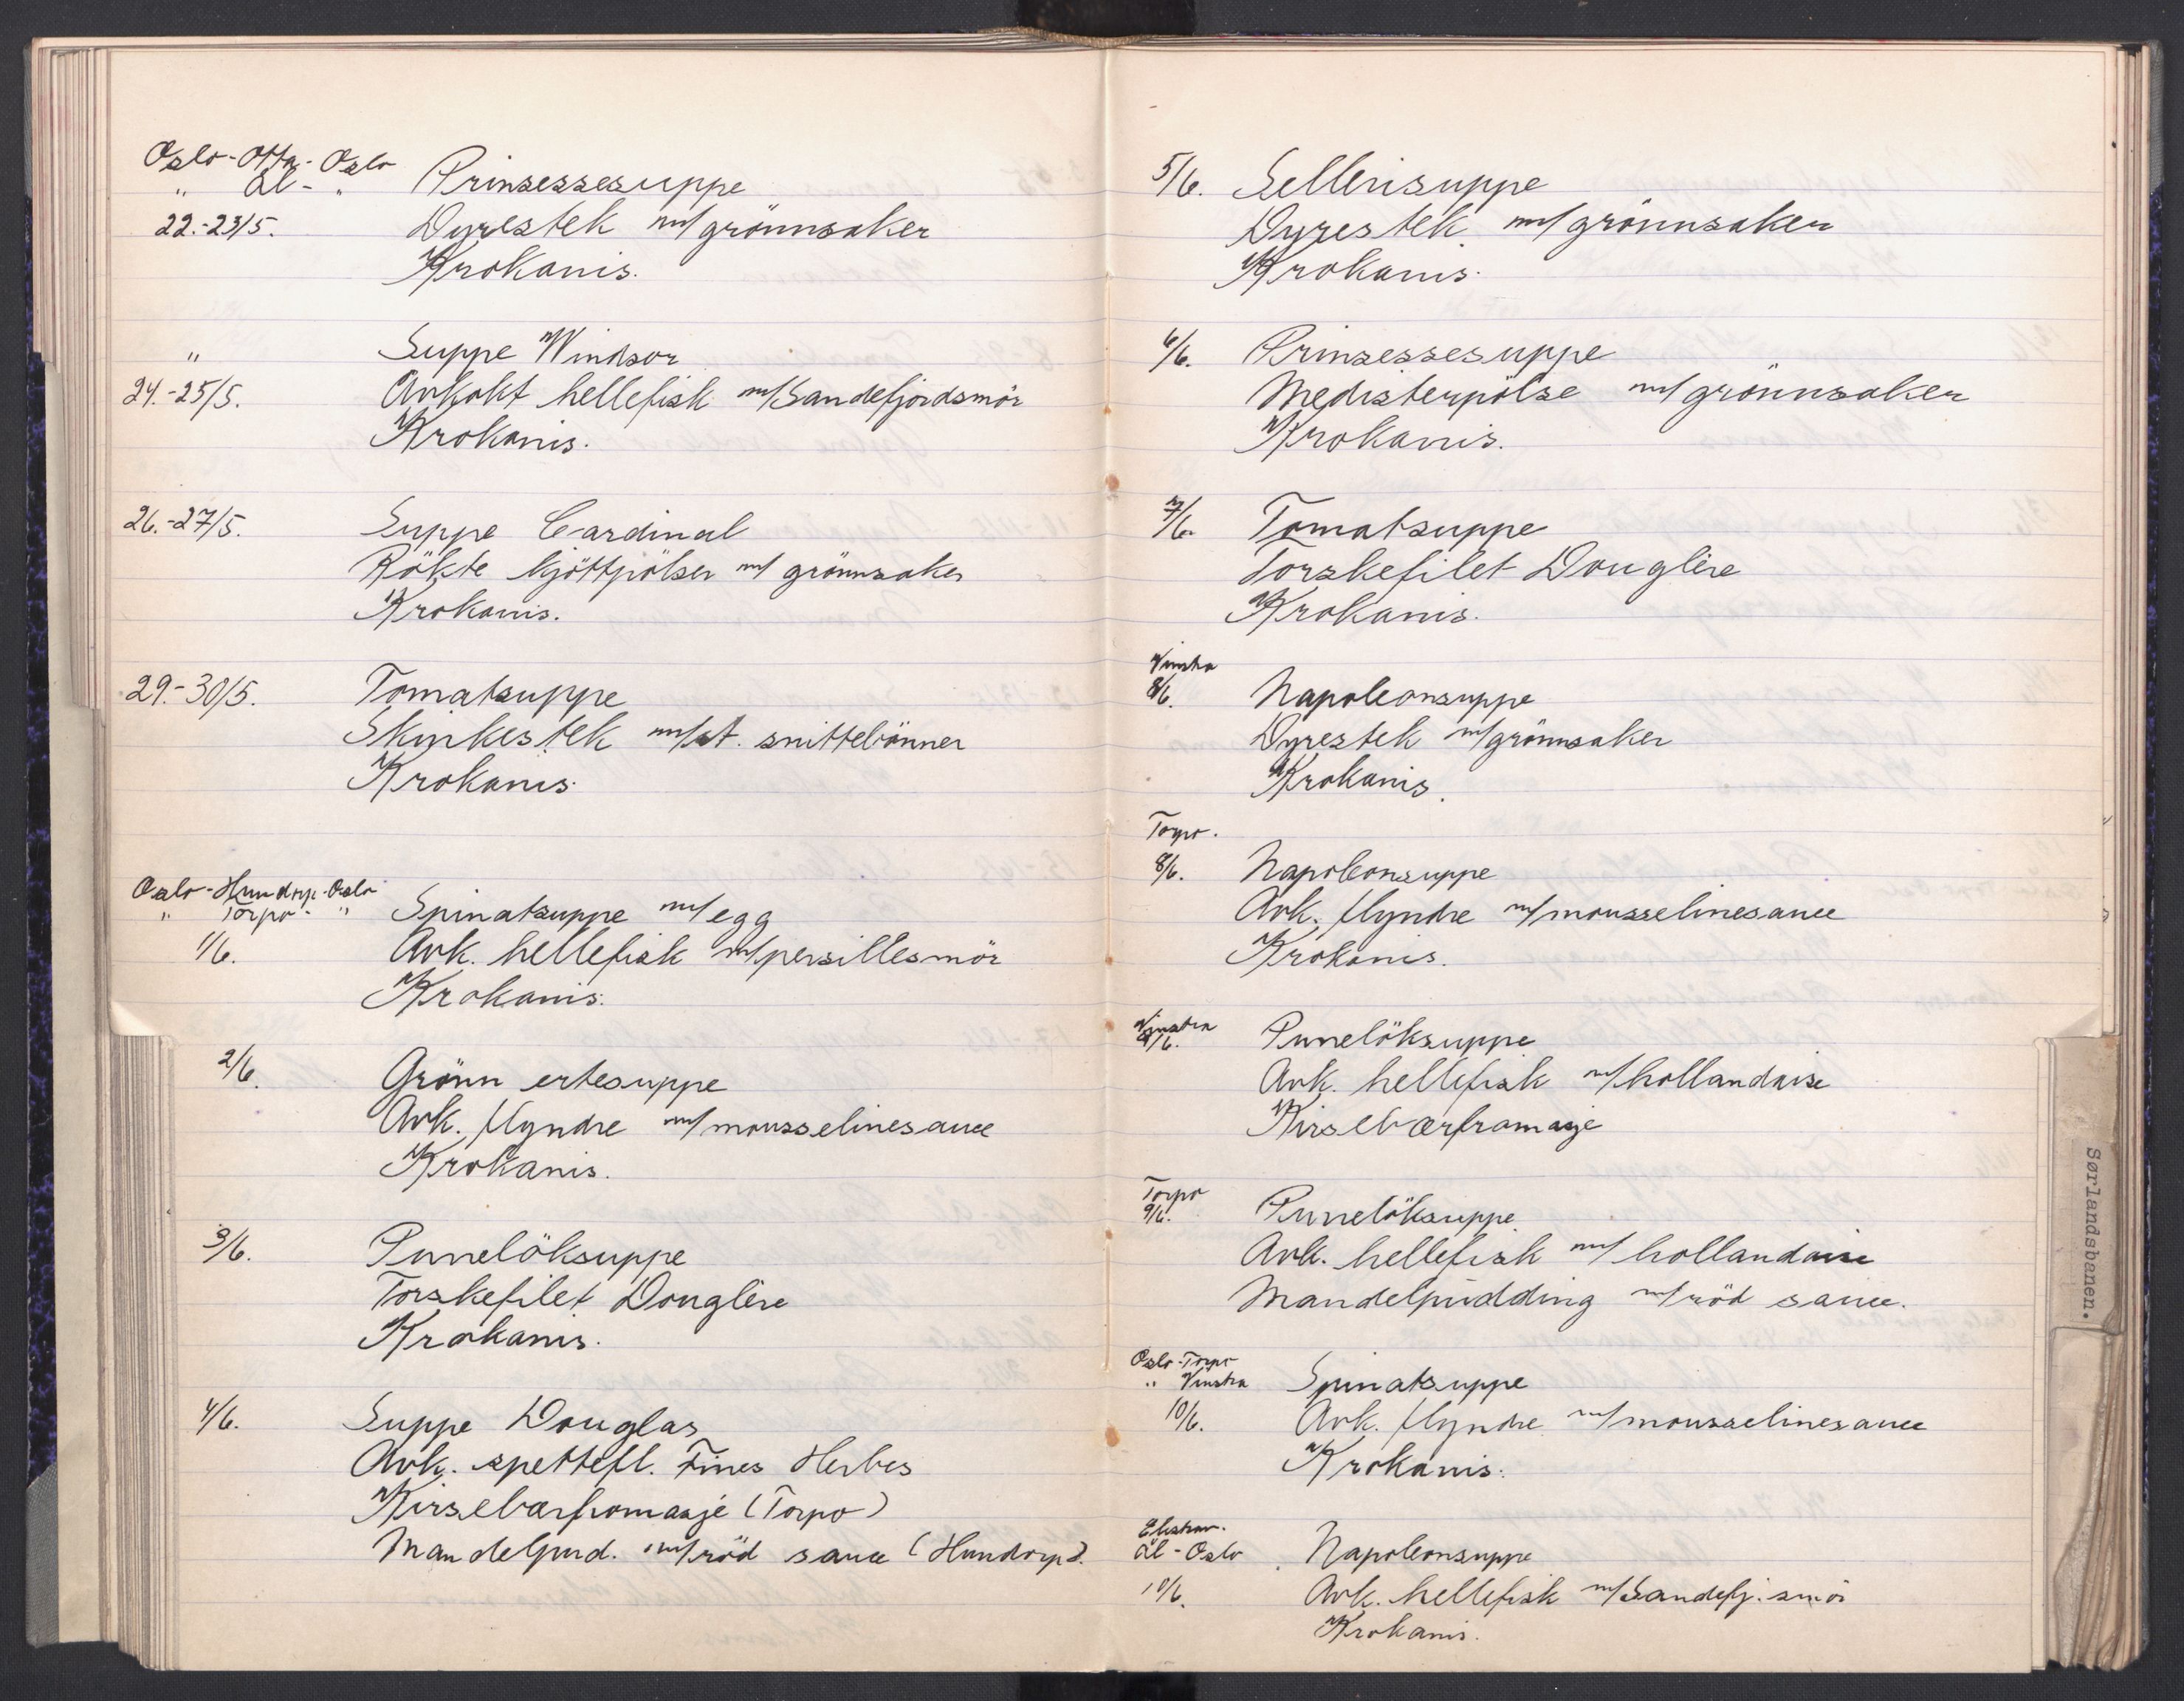 Oslo-Otta-Oslo
" Ål - "
Prinsessesuppe
22.-23/5. Dyrestek m/grönnsaker
Krokanis.
" Suppe Windsor
24.-25/5. Avkokt hellefisk m/Sandefjordsmör
Krokanis.
26.-27/5. Suppe Cardinal
Rökte kjöttpölser m/ grönnsaker
Krokanis.
29.-30/5. Tomatsuppe
Skinkestek m/st. snittebönner
Krokanis.
Oslo-Hundorp-Oslo
" Torpo - "
Spinatsuppe m/egg
1/6. Avk. hellefisk m/persillesmör
Krokanis.
2/6. Grönn ertesuppe
Avk. flyndre m/mousselinesauce
Krokanis.
3/6. Purrelöksuppe
Torskefilet Douglère
Krokanis.
4/6. Suppe Douglas
Avk. spettefl. Fines Herbes
Kirsebærfromasje (Torpo)
Mandelpud. m/röd sauce (Hundorp).
5/6. Sellerisuppe
Dyrestek m/grönnsaker
Krokanis.
6/6. Prinsessesuppe
Medisterpölse m/grönnsaker
Krokanis.
7/6. Tomatsuppe
Torskefilet Douglère
Krokanis.
Vinstra
8/6. Napoleonsuppe
Dyrestek m/grönnsaker
Krokanis.
Torpo.
8/6. Napoleonsuppe
Avk. flyndre m/mousselinesauce
Krokanis.
Vinstra
9/6. Purrelöksuppe
Avk. hellefisk m/hollandaise
Kirsebærfromasje
Torpo
9/6. Purrelöksuppe
Avk. hellefisk m/hollandaise
Mandelpudding m/röd sauce.
Oslo-Torpo
" Vinstra
Spinatsuppe
10/6. Avk. flyndre m/mousselinesauce
Krokanis.
Ål - Oslo Napoleonsuppe
10/6. Avk. hellefisk m/Sandefj. smör
Krokanis.
Sørlandsbanen.